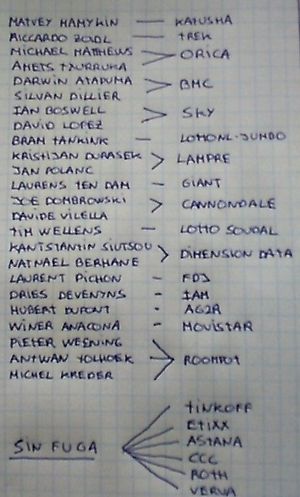 MATVEY MAMYKIN — KATUSHA
RICCARDO ZOIDL — TREK
MICHAEL MATTHEWS
AMETS TXURRUKA > ORICA
DARWIN ATAPUMA
SILVAN DILLIER > BMC
IAN BOSWELL
DAVID LOPEZ > SKY
BRAM TANKINK — LOTONL-JUMBO
KRISTIJAN DURASEK
JAN POLANC > LAMPRE
LAURENS TEN DAM — GIANT
JOE DOMBROWSKI
DAVIDE VILELLA > CANNONDALE
TIM WELLENS — LOTTO SOUDAL
KANTSTANTIN SIUTSOU
NATNAEL BERHANE > DIMENSION DATA
LAURENT PICHON — FDJ
DRIES DEVENYNS - IAM
HUBERT DUPONT - AG2R
WINER ANACONA - MOVISTAR
PIETER WEENING
ANTWAN TOLHOEK > ROOMPOT
MICHEL KREDER
TINKOFF
ETIXX
ASTANA
SIN FUGA
CCC
ROTH
VERVA